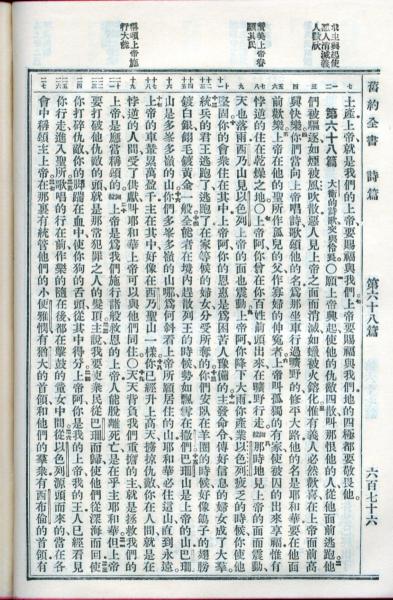 舊約全書 詩篇 第六十八篇 六百七十六
人歡欣
惡人消滅義
顧其民
讚美上帝眷
行大能
稱頌上帝施
土產上帝就是我們的上帝要賜福與我們上帝要賜福與我們地的四極都要敬畏他
第六十八篇 大衛的詩歌交與伶長○願上帝興起使他的仇敵四散叫那恨他的人從他面前逃跑他
們被驅逐如煙被風吹散惡人見上帝之面而消滅如蠟被火鎔化惟有義人必然歡喜在上帝面前高
興快樂你們當向上帝唱詩歌頌他的名爲那坐車行過曠野的修平大路他的名是耶和華要在他面
前歡樂上帝在他的聖所作孤兒的父作寡婦的伸冤者上帝叫孤獨的有家使被囚的出來享福惟有
悖逆的住在乾燥之地○上帝阿你曾在你百姓前頭出來在曠野行走細拉那時地見上帝的面而震動
天也落雨西乃山見以色列上帝的面也震動上帝阿你降下大雨你產業以色列疲乏的時候你使他
堅固你的會衆住在其中上帝阿你的恩惠是爲困苦人豫備的主發命令傳好信息的婦女成了大羣
統兵的君王逃跑了逃跑了在家等候的婦女分受所奪的你們安臥在羊圈的時候好像鴿子的翅膀
鍍白銀翎毛鍍黃金一般全能者在境內趕散列王的時候勢如飄雪在撒們巴珊山是上帝的山巴珊
山是多峯多嶺的山你們多峯多嶺的山哪爲何斜看上帝所願居住的山耶和華必住這山直到永遠
上帝的車輦累萬盈千主在其中好像在西乃聖山一樣你已經升上高天擄掠仇敵你在人間就是在
悖逆的人間受了供獻叫耶和華上帝可以與他們同住○天天背負我們重擔的主就是拯救我們的
上帝是應當稱頌的細拉上帝是爲我們施行諸般救恩的上帝人能脫離死亡是在乎主耶和華但上帝
要打破他仇敵的頭就是那常犯罪之人的髮頂主說我要使衆民從巴珊而歸使他們從深海而回使
你打碎仇敵你的脚踹在血中使你狗的舌頭從其中得分上帝阿你是我的上帝我的王人已經看見
你行走進入聖所歌唱的行在前作樂的隨在後都在擊鼓的童女中間從以色列源頭而來的當在各
會中稱頌主上帝在那裏有統管他們的小便雅憫有猶大的首領和他們的羣衆有西布倫的首領有